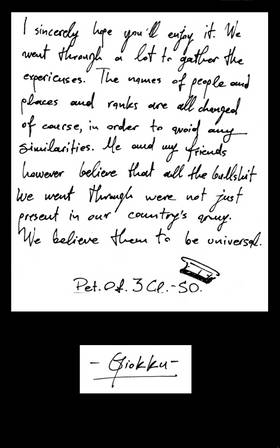 I sincerely hope you'll enjoy it. We
went through a lot to gather the
experienses. The names of people and
places and ranks are all changed
of course, in order to avoid any
similarities. Me and my friends
however believe that all the bullshit
we went through were not just
present in our country's army.
We believe them to be universal.
Pet. Of. 3 Cl.-SO.
- Giokku -